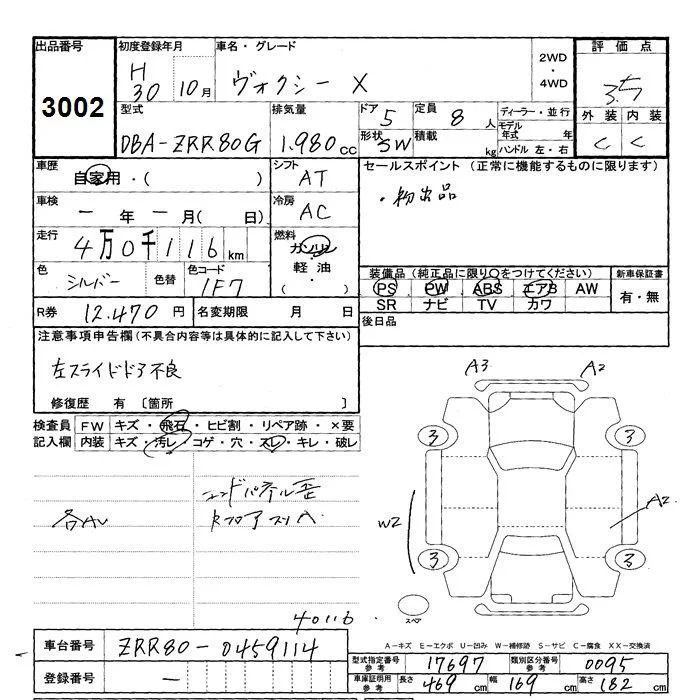 出品番号 初度登録年月 車名・グレード 2WD・4WD 評価点
3002 H30 10月 ヴォクシー X 3.5
型式 排気量 ドア 5 定員 8人 ディーラー・並行 外装 内装
DBA-ZRR80G 1.980cc 形状 5W 積載 kg モデル年式 年 ハンドル 左・右 C C
車歴 自家用・( ) シフト AT セールスポイント (正常に機能するものに限ります)
車検 ー年ー月( 日) 冷房 AC ・初出品
走行 4万0千116km 燃料 ガソリン・軽油・( )
色 シルバー 色替 色コード 1F7 装備品 (純正品に限り○をつけてください) 新車保証書
PS PW ABS エアB AW 有・無
SR ナビ TV カワ
R券 12.470円 名変期限 月 日 後日品
注意事項申告欄 (不具合内容等は具体的に記入して下さい)
左スライドドア不良
修復歴 有 〔箇所 〕
検査員 FW キズ・飛石・ヒビ割・リペア跡・×要
記入欄 内装 キズ・汚レ・コゲ・穴・スレ・キレ・破レ
A3 A2
3 3
各AU
W2 A2
3 3
スペア
40116
A−キズ E−エクボ U−凹み W−補修跡 S−サビ C−腐食 XX−交換済
車台番号 ZRR80-0459114 型式指定番号 参考 17697 類別区分番号 参考 0095
登録番号 ー 車庫証明用 参考 長さ 469cm 幅 169cm 高さ 182cm